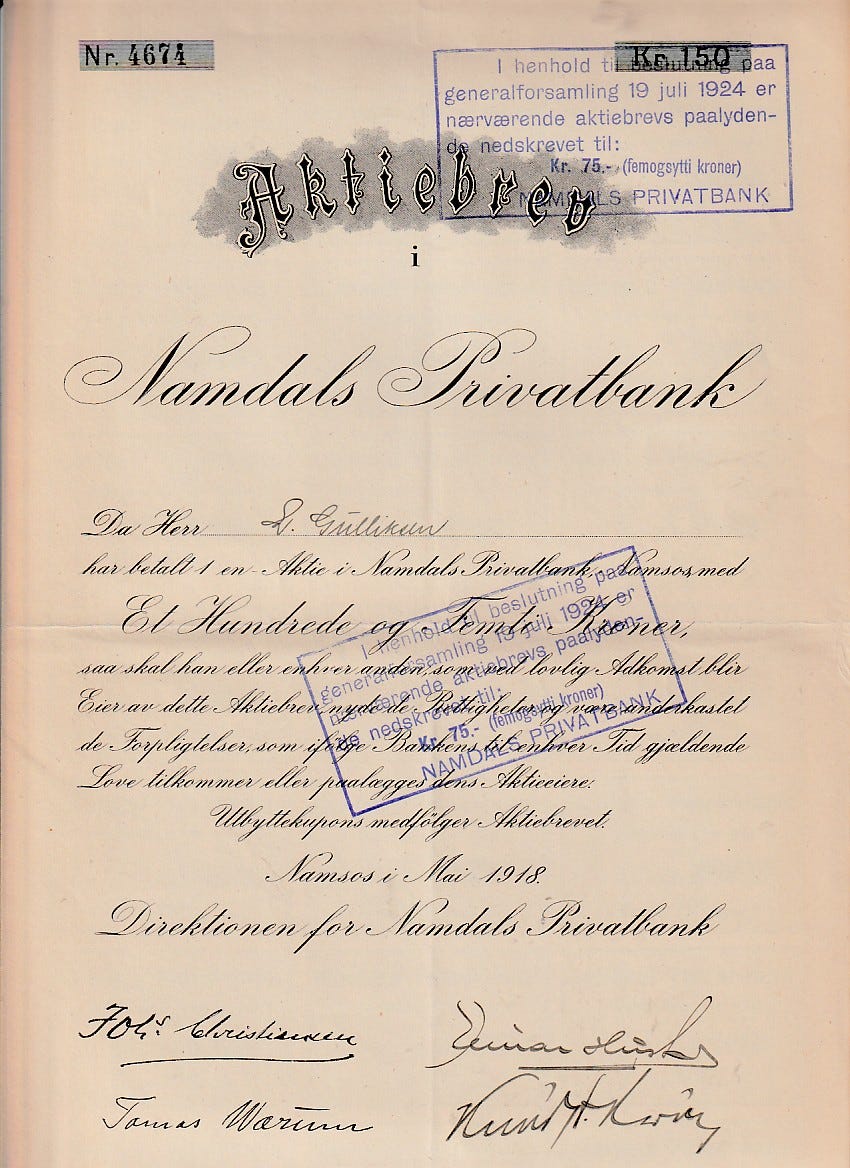 Nr. 4674
Kr. 150
I henhold til beslutning paa
generalforsamling 19 juli 1924 er
nærværende aktiebrevs paalyden-
de nedskrevet til:
Kr. 75.- (femogsytti kroner)
NAMDALS PRIVATBANK
Aktiebrev
i
Namdals Privatbank
Da Herr L. Gulliksen
har betalt 1 en Aktie i Namdals Privatbank, Namsos, med
Et Hundrede og Femti Kroner,
saa skal han eller enhver anden, som ved lovlig Adkomst blir
Eier av dette Aktiebrev, nyde de Rettigheter og være underkastet
de Forpligtelser, som ifølge Bankens til enhver Tid gjældende
Love tilkommer eller paalægges dens Aktieeiere.
I henhold til beslutning paa
generalforsamling 19 juli 1924 er
nærværende aktiebrevs paalyden-
de nedskrevet til:
Kr. 75.- (femogsytti kroner)
NAMDALS PRIVATBANK
Utbyttekupons medfölger Aktiebrevet.
Namsos i Mai 1918.
Direktionen for Namdals Privatbank
Johs. Christiansen
Tomas Wærum